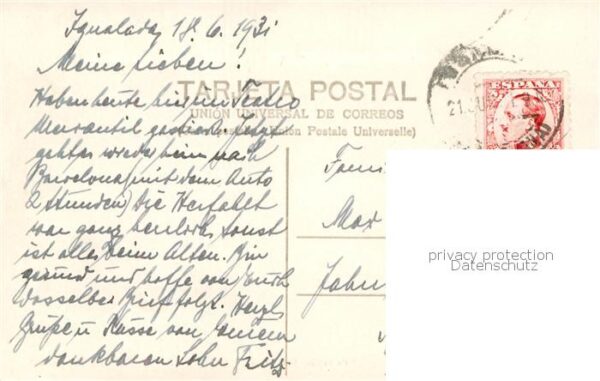 Igualada, 18. 6. 1931
Meine Lieben!
TARJETA POSTAL
UNIÓN UNIVERSAL DE CORREOS
Unión Postale Universelle)
Haben heute hier im Teatro
Mercantil
geht es wieder heim nach
Barcelona (mit dem Auto
2 Stunden) Die Herfahrt
war ganz herrlich sonst
ist alles beim Alten. Bin
gesund und hoffe von Euch
dasselbe. Brief folgt. Herzl
Grüße u Küsse von Eurem
dankbaren Sohn Fritz
Fami
Max
John
ESPAÑA
21
privacy protection
Datenschutz